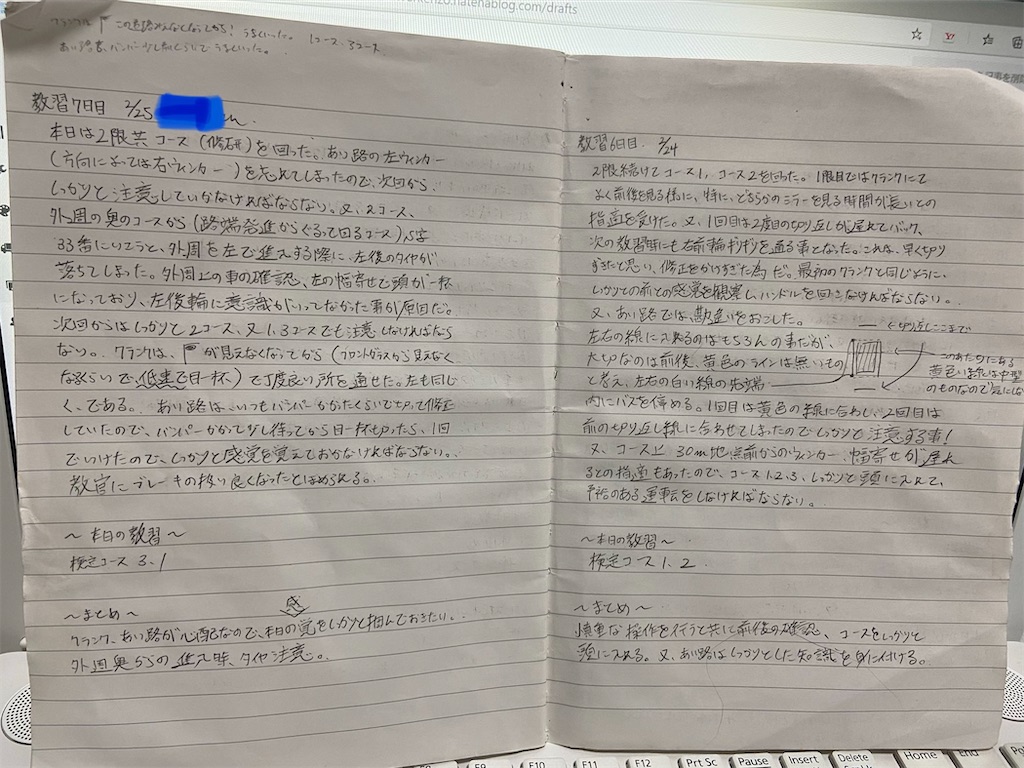 hatenablog.com/drafts
クランクは この道路みんななくなってから! うまくいった。 1コース、3コース
あい路も、バンパー少し位で うまくいった。
教習7日目 2/25
本日は2限共コース(修研)を回った。あい路の左ウィンカー
(方向によっては右ウィンカー)を忘れてしまったので、次回から
しっかりと注意していかなければならない。又、2コース、
外周の奥のコースから(路端発進からぐるって回るコース)S字
33番にいこうと、外周を左で進入する際に、左後のタイヤが
落ちてしまった。外周上の車の確認、左の幅寄せで頭が一杯
になっており、左後輪に意識がいってなかった事が原因だ。
次回からはしっかりと2コース、又1.3コースでも注意しなければなら
ない。. クランクは、 が見えなくなってから(フロントガラスから見えなく
なるくらいで、低速で目一杯)で丁度良い所を通せた。左も同じ
く、である。. あい路は、いつもバンパーかかったくらいで切って修正
していたので、バンパーかかって少し待ってから目一杯切ったら、1回
でいけたので、しっかりと感覚を覚えておかなければならない。.
教官にブレーキの扱い良くなったとほめられる。
~本日の教習~
検定コース 3.1
~まとめ~
感
クランク、あい路が心配なので、本日の覚をしっかりと掴んでおきたい。.
外周奥からの進入時、タイヤ注意。.
教習6日目. 2/24
2限続けてコース1、コース2を回った。1限目ではクランクにて
よく前後を見る様に、特に、どちらかのミラーを見る時間が長いとの
指適を受けた。又、1回目は2度目の切り返しが遅れてバック、
次の教習時にも右前輪ギリギリを通る事となった。これは、早く切り
すぎたと思い、修正をかけすぎた為だ。最初のクランクと同じように、
しっかりと前との感覚を観察し、ハンドルを回さなければならない。.
又、あい路では、勘違いをおこした。
切り返しここまで
左右の線に入れるのはもちろんの事だが、
大切なのは前後、黄色のラインは無いもの
このあたりにある
黄色い線は中型
のものなので気にしない
と考え、左右の白い線の先端
内にバスを停める。1回目は黄色の線に合わし、2回目は
前の切り返し線に合わせてしまったのでしっかりと注意する事!
又、コース上 30m地点前からのウィンカー、幅寄せが遅れ
るとの指適もあったので、コース1.2.3、しっかりと頭に入れて、
予裕のある運転をしなければならない。
~本日の教習~
検定コース1.2
~まとめ~
慎重な操作を行うと共に前後の確認、コースをしっかりと
頭に入れる。又、あい路はしっかりとした知識を身に付ける。
F9 F10 F11 F12 Prt Sc Pause Insert Delete Home End